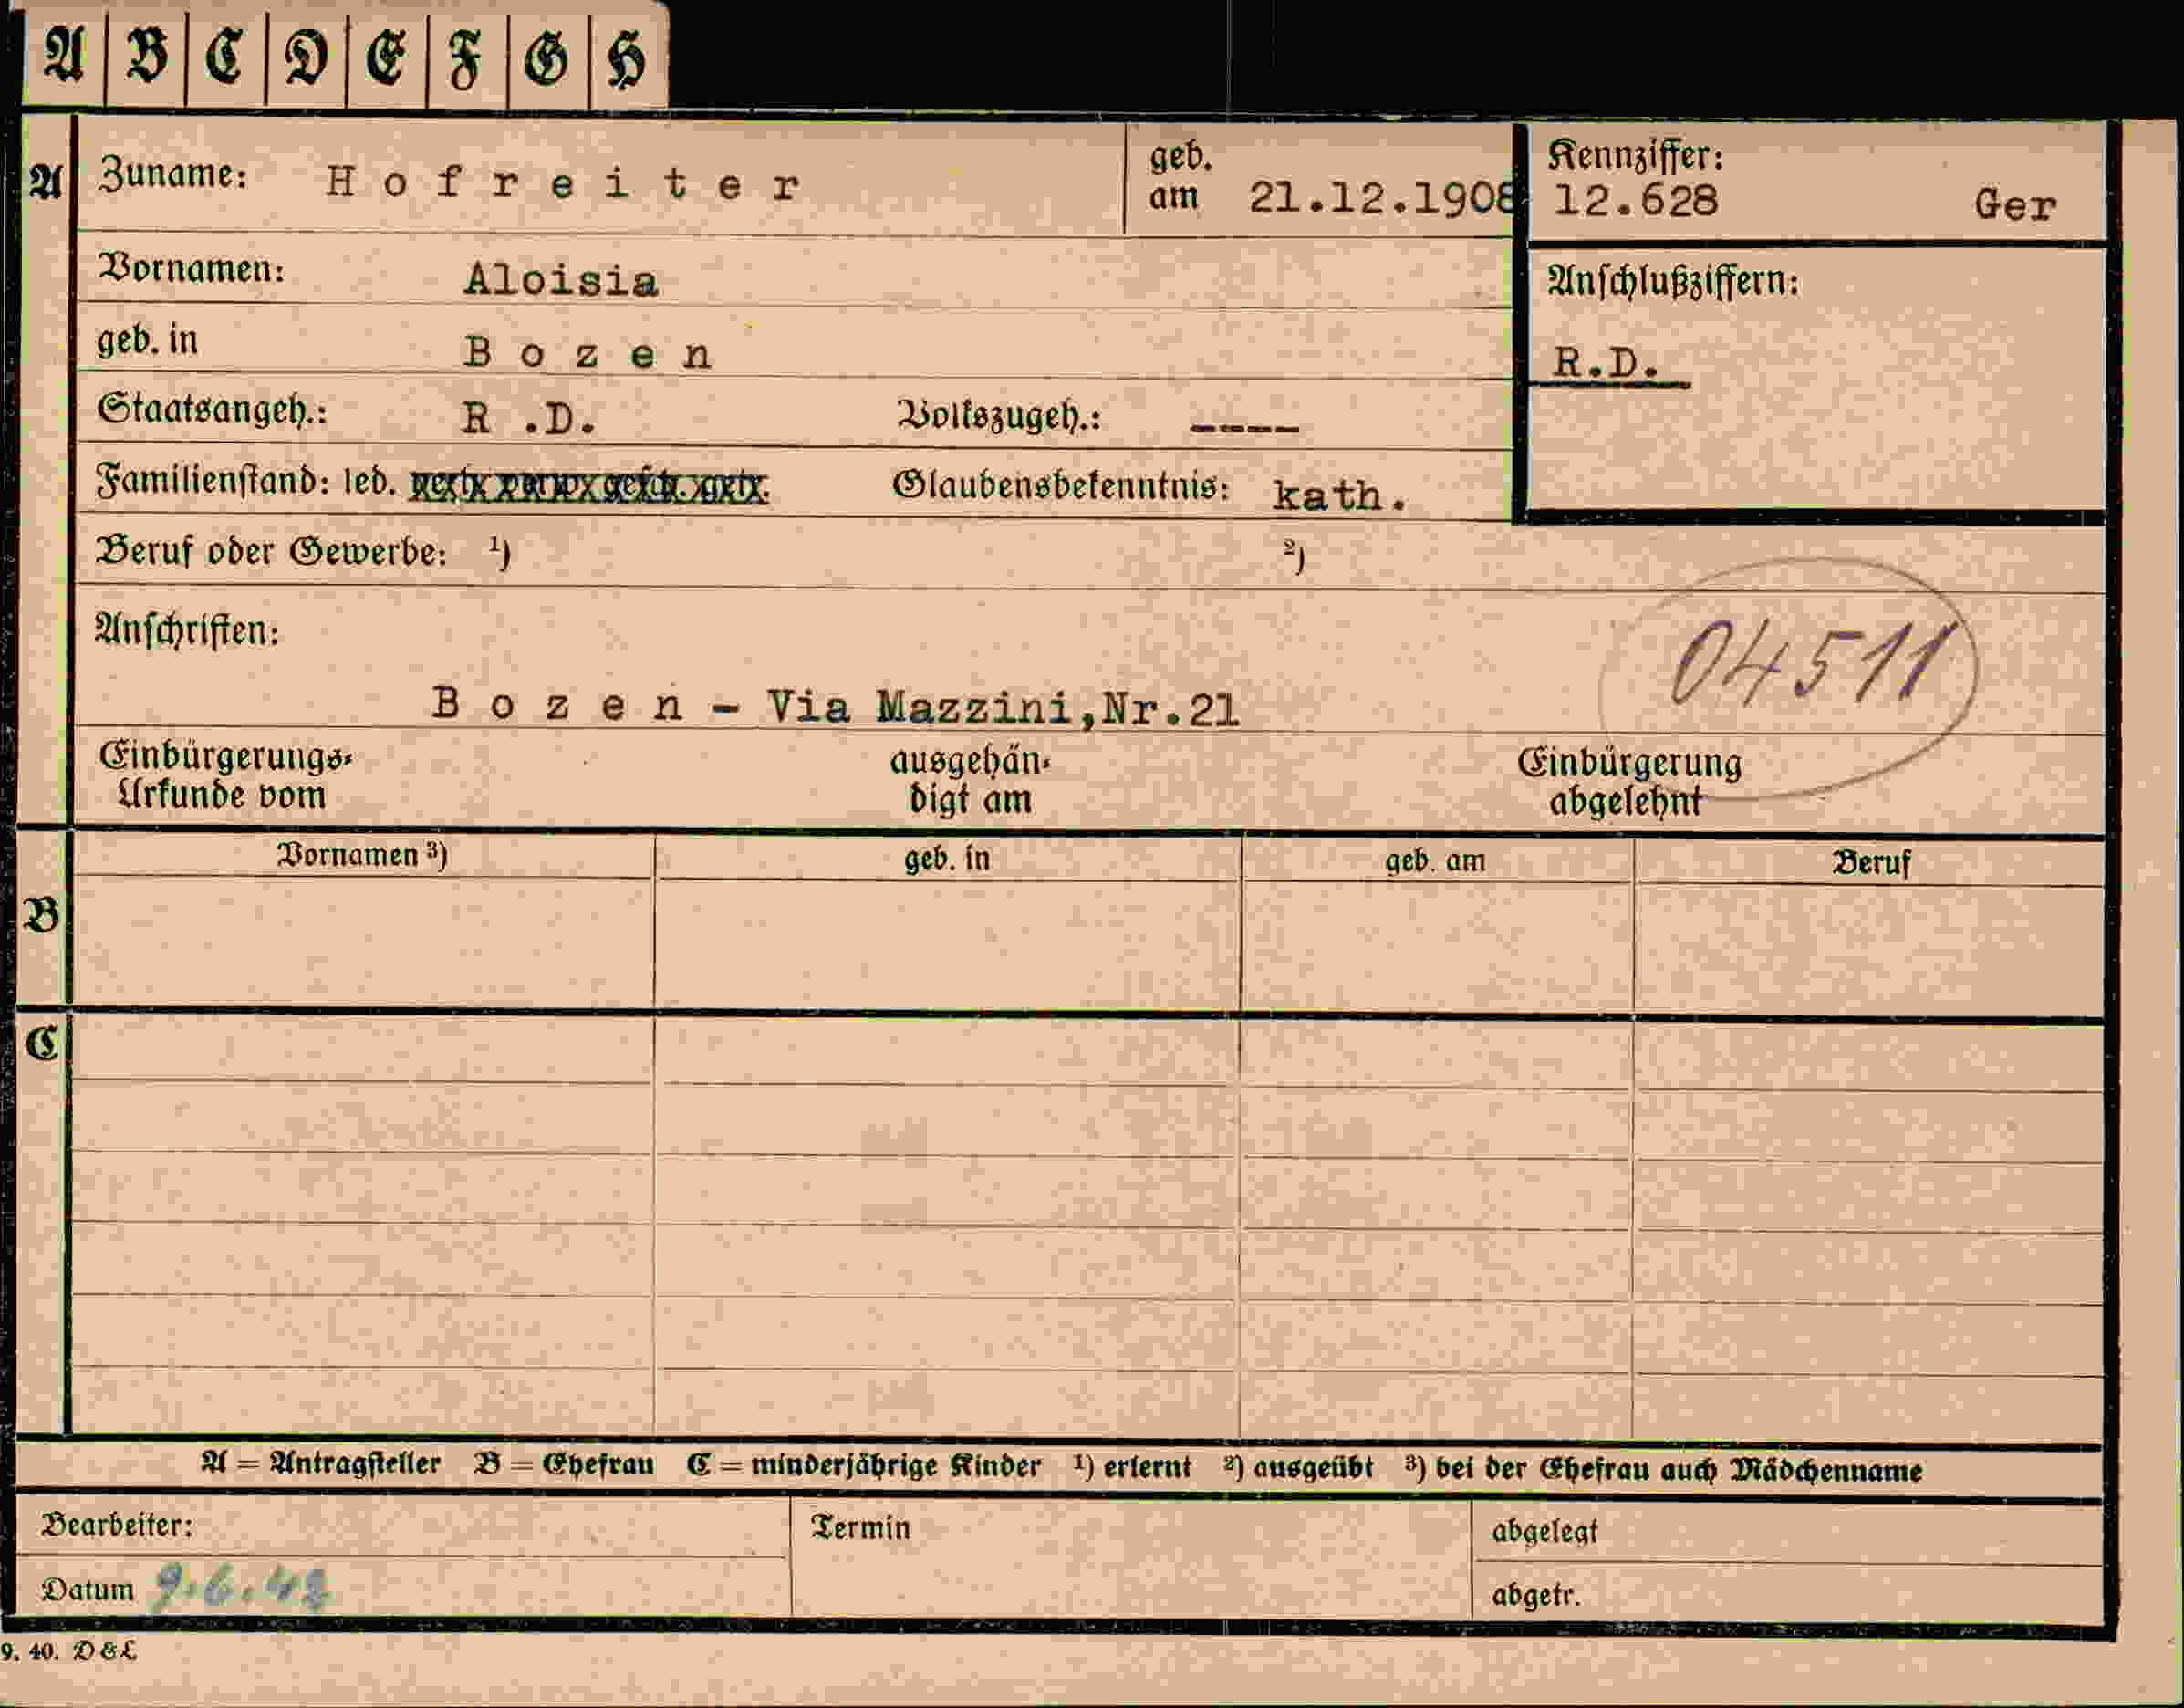 A B C D E F G H
A Zuname: Hofreiter geb. am 21.12.1908 Kennziffer: 12.628 Ger
Vornamen: Aloisia Anschlußziffern:
geb. in Bozen R.D.
Staatsangeh.: R .D. Volkszugeh.: ----
Familienstand: led. Glaubensbekenntnis: kath.
Beruf oder Gewerbe: ¹) ²)
Anschriften: 04511
Bozen - Via Mazzini,Nr.21
Einbürgerungs- ausgehän- Einbürgerung
Urkunde vom digt am abgelehnt
Vornamen ³) geb. in geb. am Beruf
B
C
A = Antragsteller B = Ehefrau C = minderjährige Kinder ¹) erlernt ²) ausgeübt ³) bei der Ehefrau auch Mädchenname
Bearbeiter: Termin abgelegt
Datum 9.6.42 abgetr.
9. 40. D&L